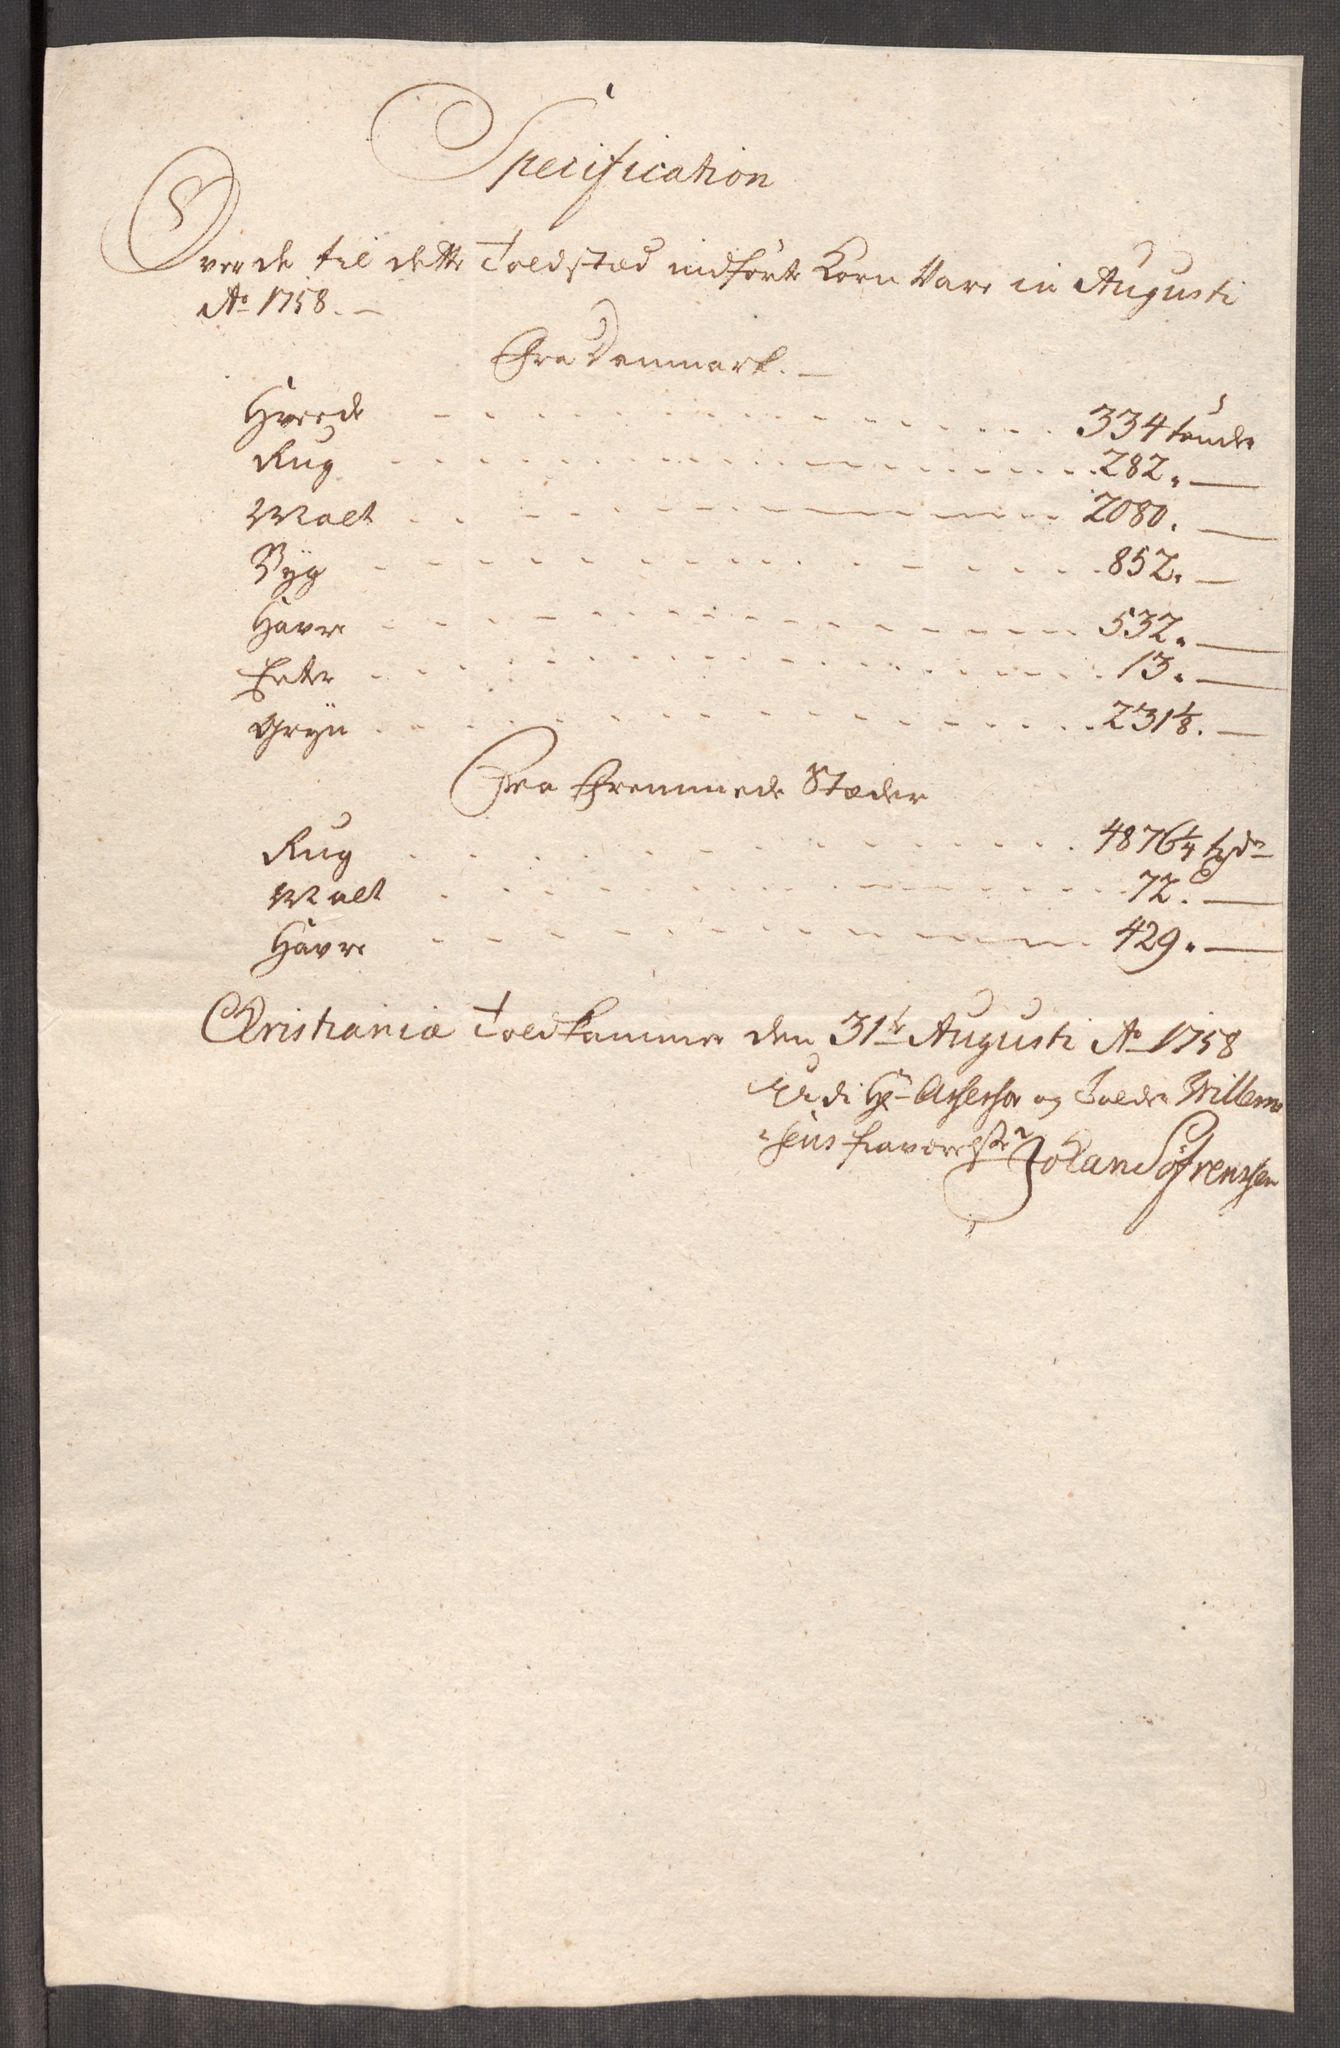 Specification
Over de til dette Toldstæd indførte Korn Vare in Augusti
Ao 1758.
Fra Danmark.
Hvede 334 tønder
Rug 282.
Malt 2080.
Byg 852.
Havre 532.
Erter 13.
Gryn 231 1/8.
Fra Fremmede Stæder
Rug 4876 1/4 tdr
Malt 72.
Havre 429.
Christiania Toldkammer den 31te Augusti Ao 1758
udi Hr Assessor og Tolder Willem
sens fraværelse Johan Søfrensen